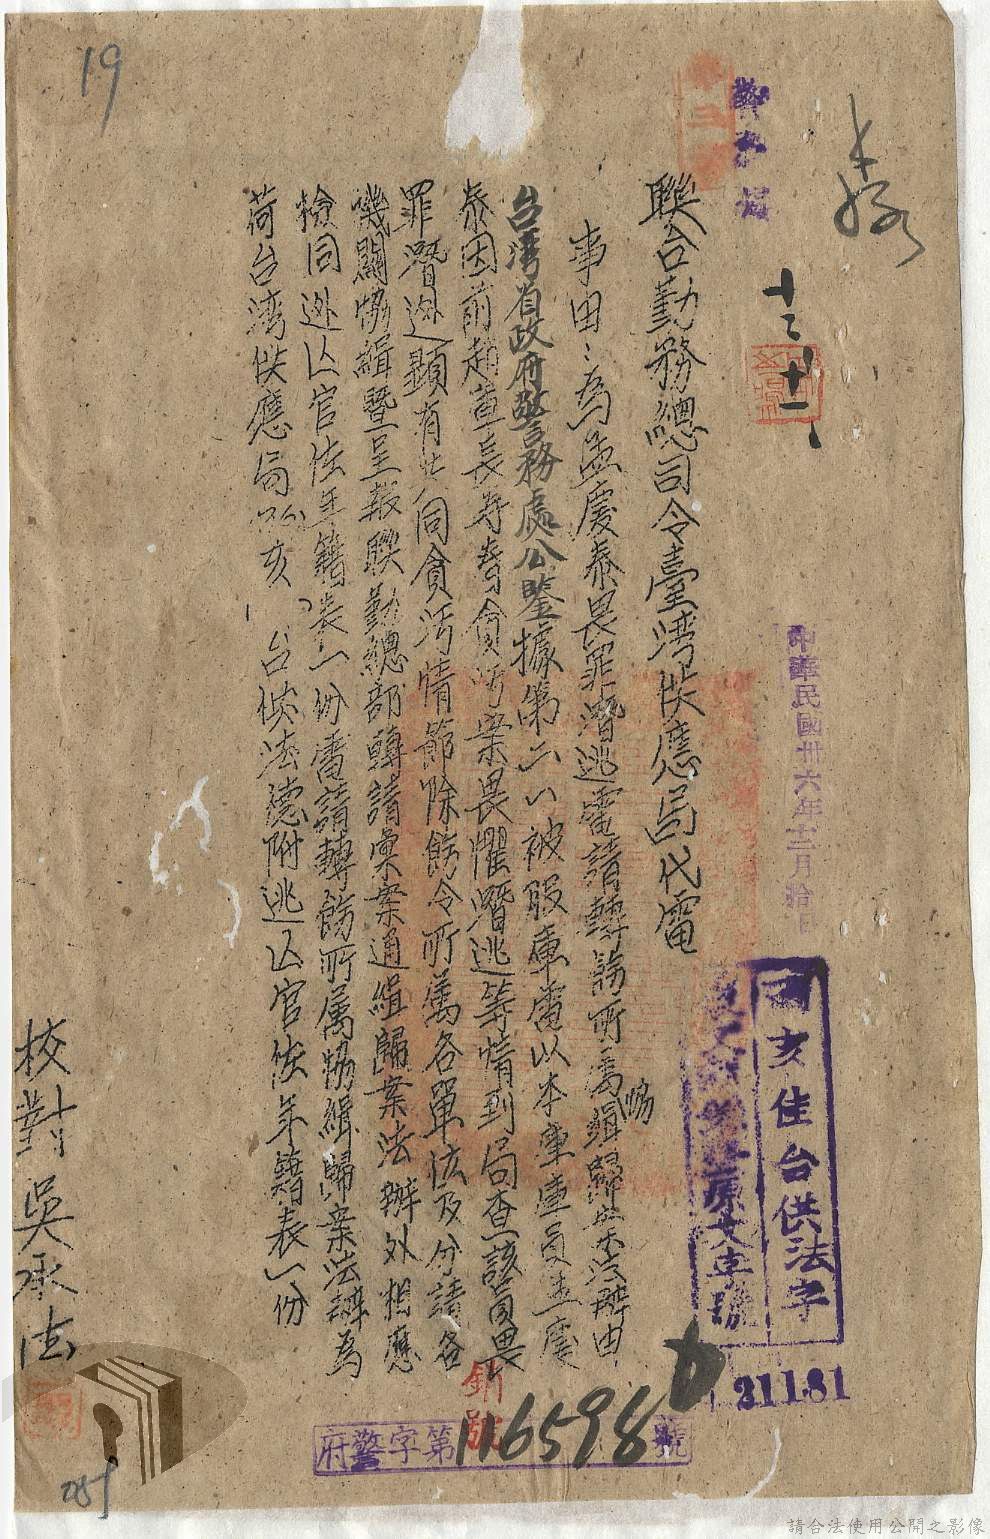 19
聯合勤務總司令臺灣供應局代電
事由：為孟慶泰畏罪潛逃電請轉飭所屬協緝歸案法辦由
台湾省政府警務處公鑒據第六八被服庫電以本庫庫員孟慶
泰因前趙董長寿等貪污案畏懼潛逃等情到局查該員畏
罪潛逃顯有共同貪污情節除飭令所屬各單位及分請各
機關協緝暨呈報聯勤總部轉請彙案通緝歸案法辦外相應
檢同逃亡官佐年籍表一份電請轉飭所屬協緝歸案法辦為
荷台湾供應局 亥 台供法德附逃亡官佐年籍表一份
校對吳承法
中華民國卅六年十二月拾日
十二 十一
亥佳台供法字
21181
府警字第116598號
銷號
請合法使用公開之影像